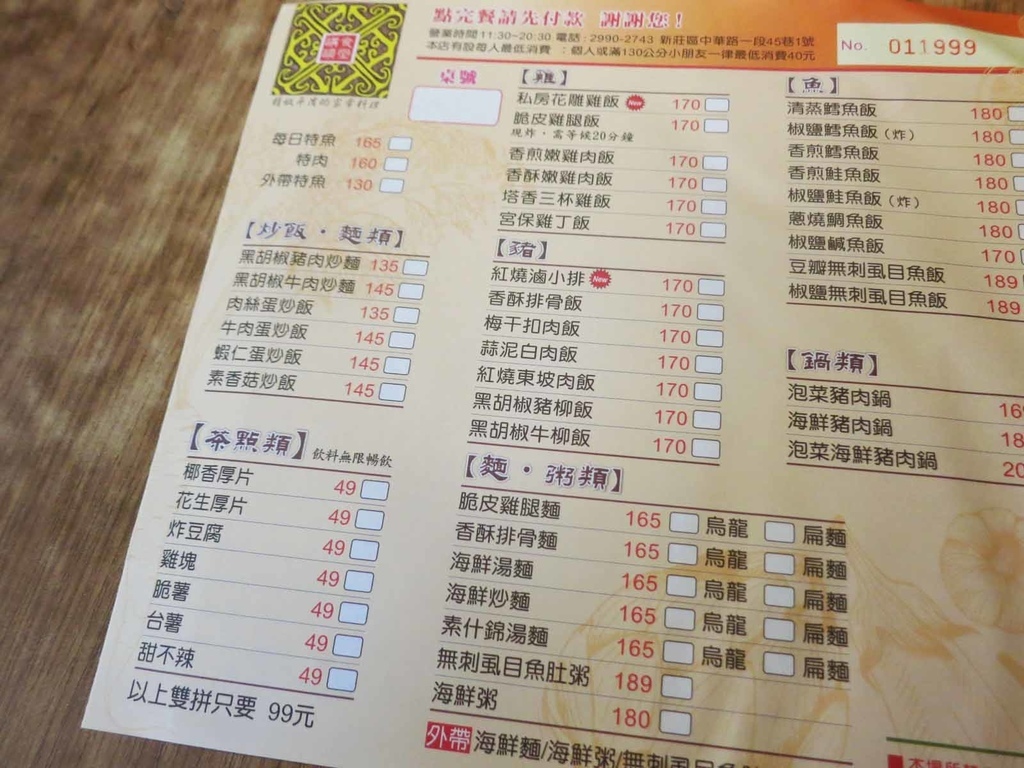 點完餐請先付款 謝謝您！
營業時間11:30~20:30 電話：2990-2743 新莊區中華路一段45巷1號
本店有設每人最低消費 ：個人或滿130公分小朋友一律最低消費40元
No. 011999
桌號
每日特魚 165
特肉 160
外帶特魚 130
【炒飯・麵類】
黑胡椒豬肉炒麵 135
黑胡椒牛肉炒麵 145
肉絲蛋炒飯 135
牛肉蛋炒飯 145
蝦仁蛋炒飯 145
素香菇炒飯 145
【茶點類】飲料無限暢飲
椰香厚片 49
花生厚片 49
炸豆腐 49
雞塊 49
脆薯 49
台薯 49
甜不辣 49
以上雙拼只要 99元
【雞】
私房花雕雞飯 New 170
脆皮雞腿飯 170
現炸，需等候20分鐘
香煎嫩雞肉飯 170
香酥嫩雞肉飯 170
塔香三杯雞飯 170
宮保雞丁飯 170
【豬】
紅燒滷小排 New 170
香酥排骨飯 170
梅干扣肉飯 170
蒜泥白肉飯 170
紅燒東坡肉飯 170
黑胡椒豬柳飯 170
黑胡椒牛柳飯 170
【麵・粥類】
脆皮雞腿麵 165 烏龍 扁麵
香酥排骨麵 165 烏龍 扁麵
海鮮湯麵 165 烏龍 扁麵
海鮮炒麵 165 烏龍 扁麵
素什錦湯麵 165 烏龍 扁麵
無刺虱目魚肚粥 189
海鮮粥 180
外帶 海鮮麵/海鮮粥/無刺虱目魚
【魚】
清蒸鱈魚飯 180
椒鹽鱈魚飯（炸） 180
香煎鱈魚飯 180
香煎鮭魚飯 180
椒鹽鮭魚飯（炸） 180
蔥燒鯛魚飯 180
椒鹽鹹魚飯 170
豆瓣無刺虱目魚飯 189
椒鹽無刺虱目魚飯 189
【鍋類】
泡菜豬肉鍋 16
海鮮豬肉鍋 18
泡菜海鮮豬肉鍋 20